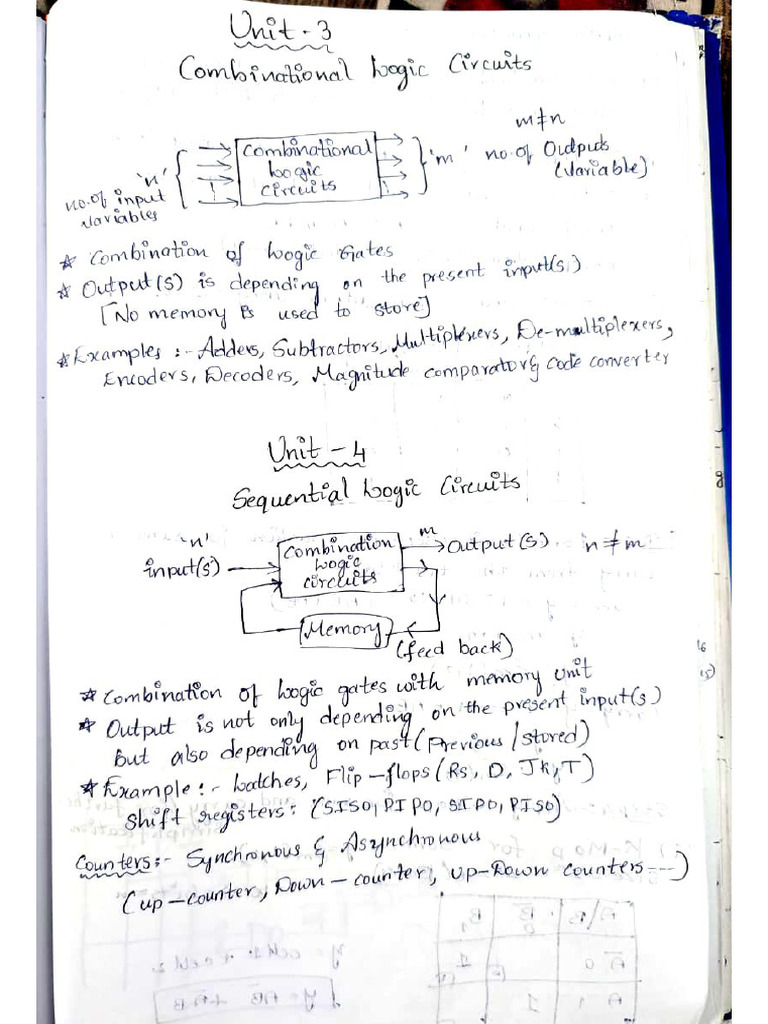 Unit - 3
Combinational Logic Circuits
m≠n
'n' no. of input variables
Combinational Logic Circuits
'm' no. of Outputs (Variable)
* Combination of Logic Gates
* Output(s) is depending on the present input(s.)
[No memory is used to store]
* Examples :- Adders, Subtractors, Multiplexers, De-multiplexers,
Encoders, Decoders, Magnitude comparator & code converter
Unit - 4
Sequential Logic Circuits
'n' input(s)
Combination Logic circuits
m Output(s) n ≠ m
Memory
(feed back)
* Combination of Logic gates with memory unit
* Output is not only depending on the present input(s)
but also depending on past (Previous / stored)
* Example :- Latches, Flip-flops (RS, D, JK, T)
Shift registers: (SISO, PIPO, SIPO, PISO)
Counters :- Synchronous & Asynchronous
(up-counter, Down-counter, up-Down counters ---)